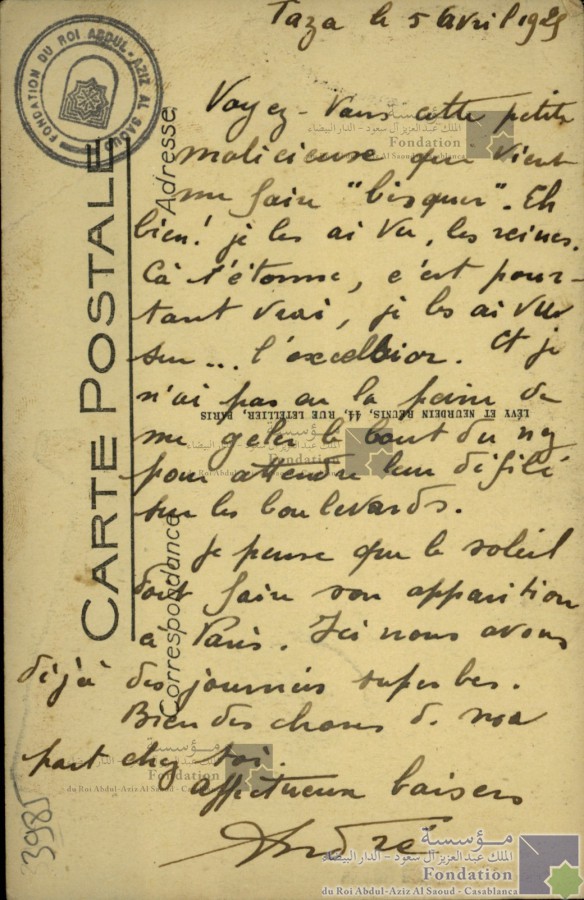 Taza le 5 Avril 1925
Voyez-vous cette petite
malicieuse qui vient
me faire "bisquer". Eh
bien! je les ai vu, les reines.
Cà t'étonne, c'est pour-
tant vrai, je les ai vu
sur... l'excelsior. Et je
n'ai pas eu la peine de
me geler le bout du nez
pour attendre leur défilé
sur les boulevards.
Je pense que le soleil
doit faire son apparition
a Paris. Ici nous avons
déjà des journées superbes.
Bien des choses de ma
part chez toi.
Affectueux baisers
André
CARTE POSTALE
Adresse
Correspondance
LÉVY ET NEURDEIN RÉUNIS, 44, RUE LETELLIER, PARIS
FONDATION DU ROI ABDUL-AZIZ AL SAOUD
3985
مؤسسة
الملك عبدالعزيز آل سعود - الدار البيضاء
Fondation
du Roi Abdul-Aziz Al Saoud - Casablanca